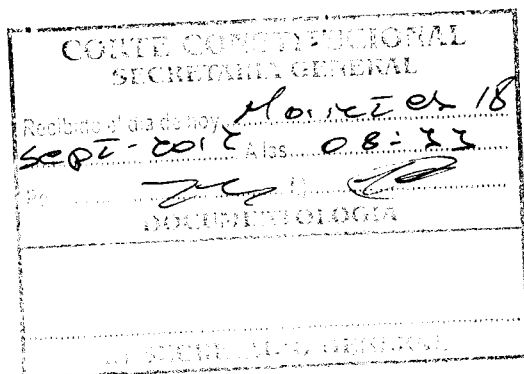 CORTE CONSTITUCIONAL
SECRETARIA GENERAL
Recibido el día de hoy Martes 18
sept- 2012 A las 08:33
Por
DOCUMENTOLOGIA